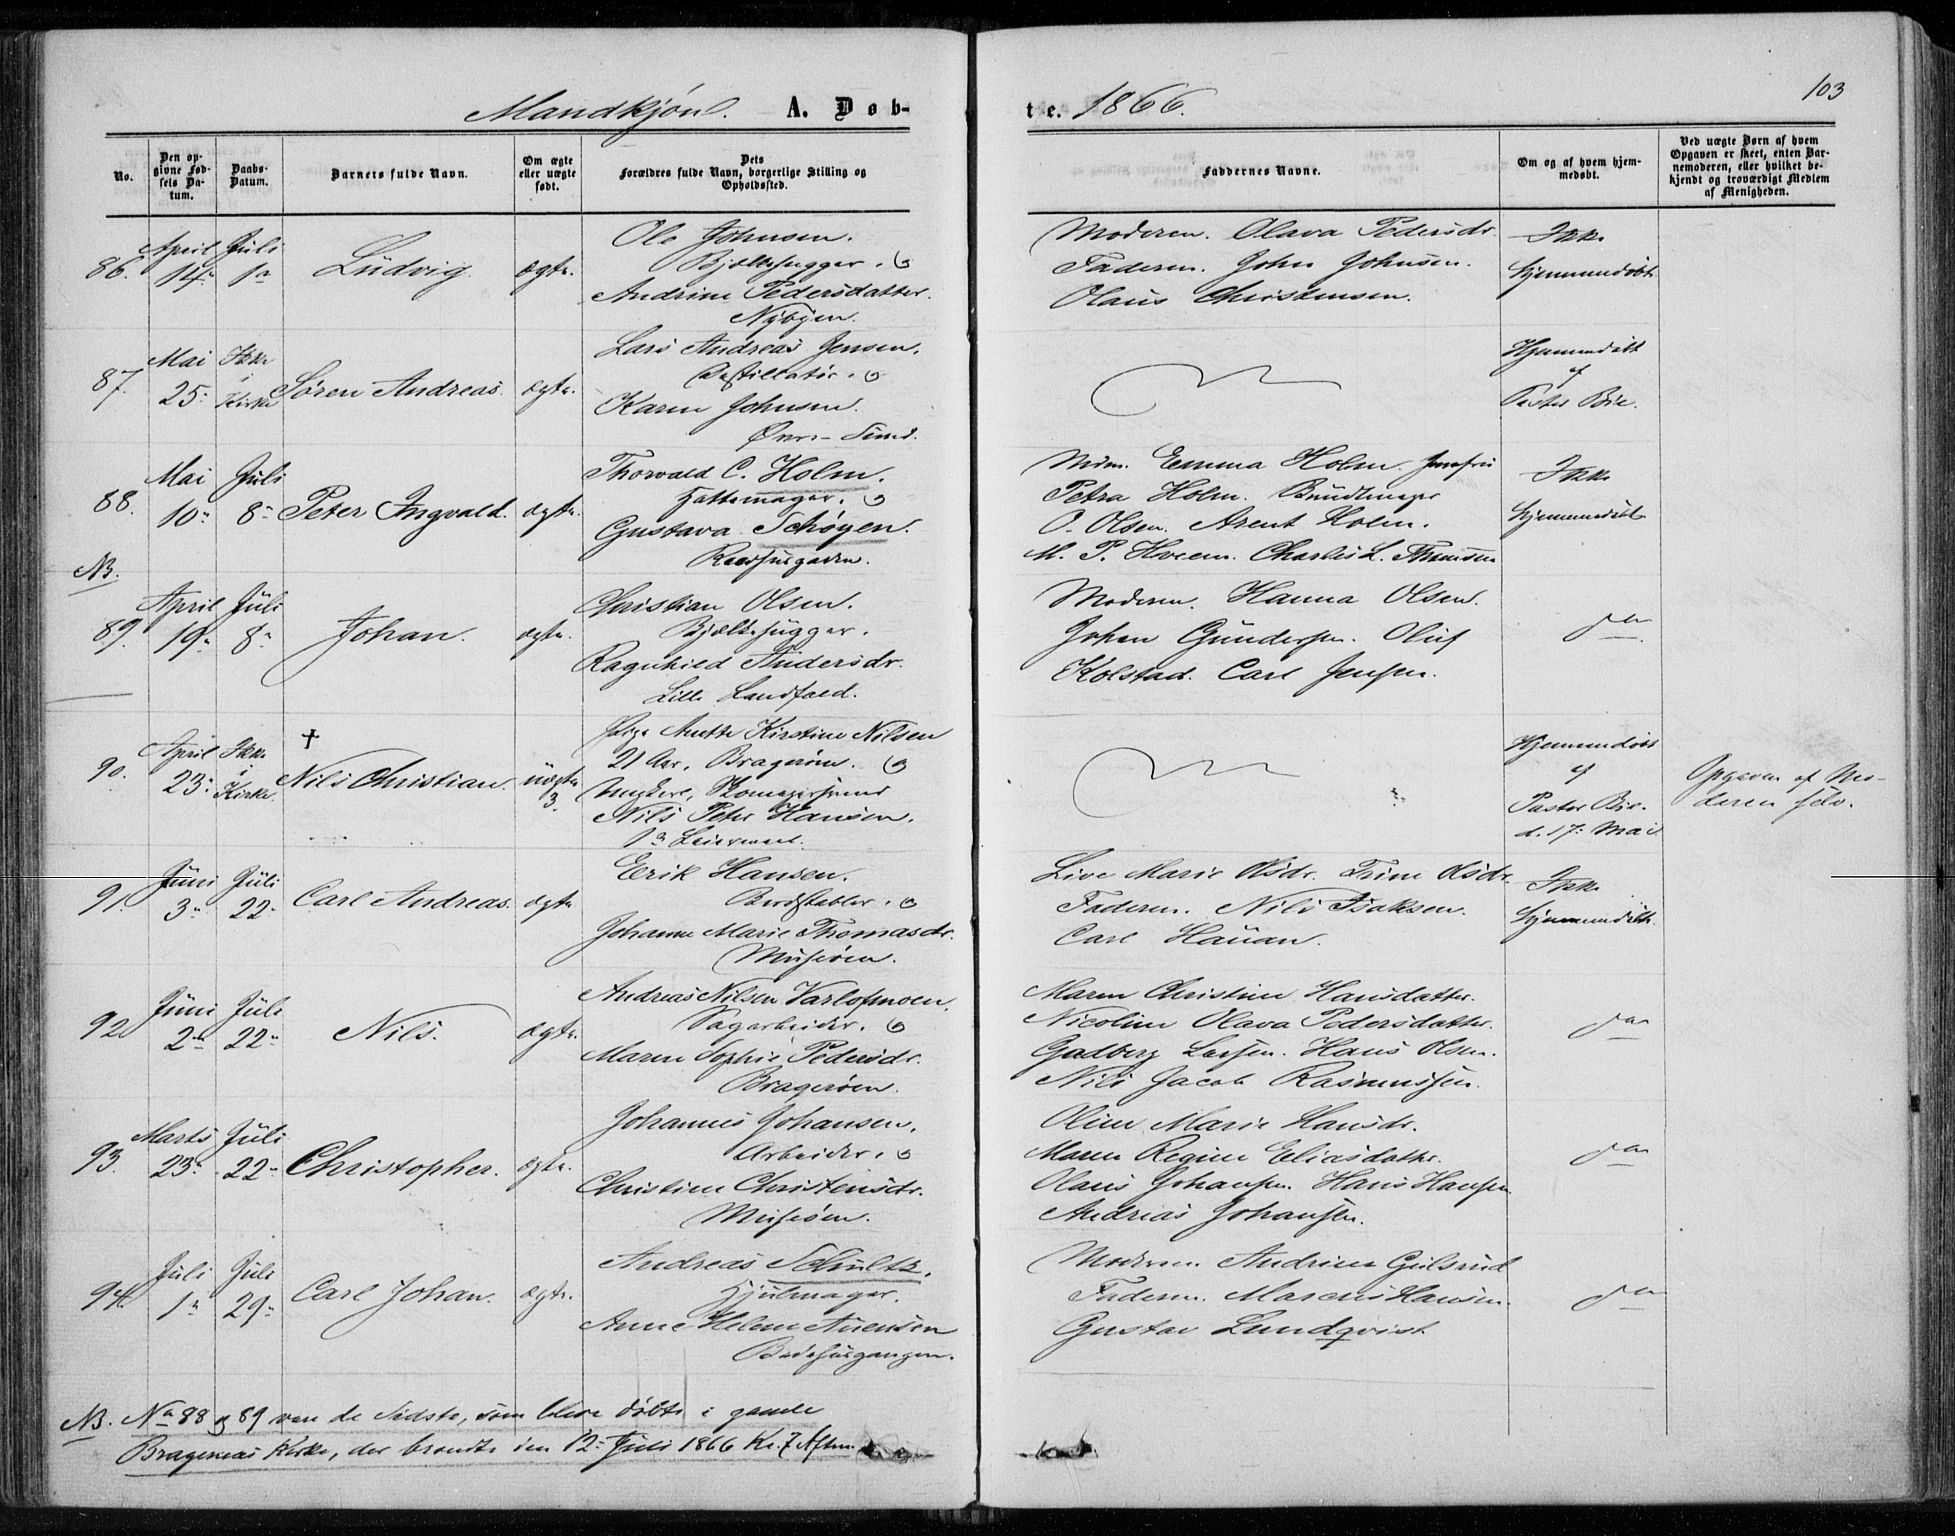 103
Mandkjøn. A. Døb-
te. 1866.
No.
Den op-
givne Fød-
sels Da-
tum.
Daabs-
Datum.
Barnets fulde Navn.
Om ægte
eller uægte
født.
Dets
Forældres fulde Navn, borgerlige Stilling og
Opholdssted.
Faddernes Navne.
Om og af hvem hjem-
medøbt.
Ved uægte Børn af hvem
Opgaven er skeet, enten Bar-
nemoderen, eller hvilket be-
kjendt og troværdigt Medlem
af Menigheden.
86. April 14de Juli 1ste Ludvig ægte.
Ole Johnsen.
Bjælkehugger. og
Andrine Pedersdatter.
Nybyen.
Moderen. Olava Pedersdr.
Faderen. John Johnsen.
Olaus Christensen.
Ikke
hjemmedøbt
87. Mai 25: Ikke i Kirke Søren Andreas. ægte.
Lars Andreas Jensen.
Destillatør. og
Karen Johnsen.
Øvre-Sund.
Hjemmedøbt
af
Pastor Bie.
88. Mai 10: Juli 8: Peter Ingvald. ægte.
Thorvald C. Holm.
Hattemager. og
Gustava Schøyen.
Raadhusgaden.
Mdm. Emma Holm. Jomfru
Petra Holm. Bundtmager
O. Olsen. Arent Holm.
M. P. Hveem. Charles L. Thomsen
Ikke
hjemmedøbt
NB.
89. April 19: Juli 8: Johan. ægte.
Christian Olsen.
Bjælkehugger.
Ragnhild Andersdr.
Lille Landfald.
Moderen. Hanna Olsen.
Johan Gundersen. Oluf
Kolstad. Carl Jensen.
do
90. April 23: Ikke i Kirke. † Nils Christian. uægte 3.
Pige Anette Kirstine Nilsen
21 Aar, Bragerøen. og
Ungkarl, Skomagersvend
Nils Peter Hansen.
1ste Leiermaal.
Hjemmedøbt
af
Pastor Bie.
d. 17: Mai
Opgaven af Mo-
deren selv.
91. Juni 3: Juli 22: Carl Andreas. ægte
Erik Hansen.
Bordstabler. og
Johanne Marie Thomasdr.
Musøen.
Live Marie Olsdr. Trine Olsdr.
Faderen. Nils Isaksen.
Carl Hauan.
Ikke
hjemmedøbt.
92. Juni 2den Juli 22: Nils. ægte.
Andreas Nilsen Varlosmoen.
Sagarbeider. og
Maren Sophie Pedersdr.
Bragerøen.
Maren Christine Hansdatter.
Nicoline Olava Pedersdatter.
Gudberg Larsen. Hans Olsen.
Nils Jacob Rasmussen.
do
93. Marts 23: Juli 22: Christopher. ægte.
Johannes Johansen.
Arbeider. og
Christine Christensdr.
Musøen.
Oline Marie Hansdr.
Maren Regine Eliasdatter.
Olaus Johansen. Hans Hansen.
Andreas Johansen.
do
94. Juli 1ste Juli 29: Carl Johan. ægte.
Andreas Schultz.
Hjulmager.
Anne Helene Svensen
Badehusgangen.
Moderen. Andrine Gulsrud
Faderen. Marcus Hansen.
Gustav Lundqvist
do
NB. No 88 og 89 vare de Sidste, som bleve døbte i gamle
Bragernæs Kirke, der brændte den 12: Juli 1866 Kl. 7 Aften.